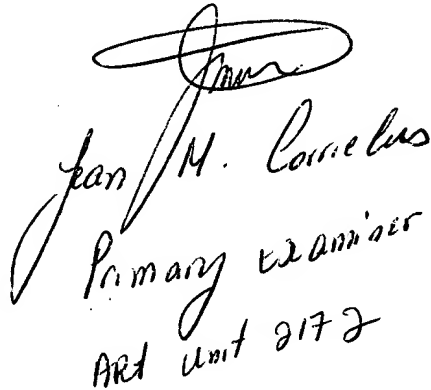 Jean M. Corrielus
Primary Examiner
ART Unit 2172